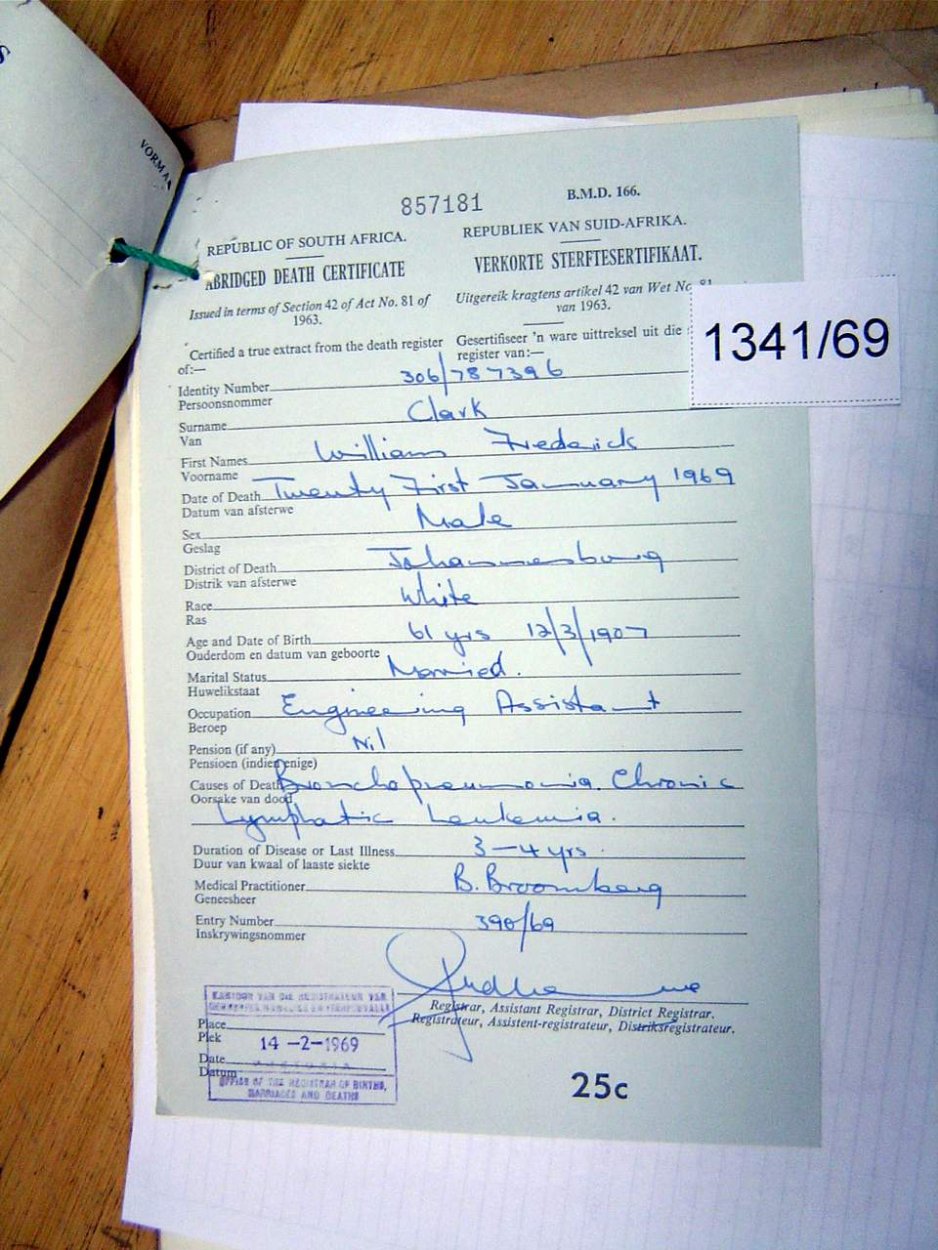 S
VORM A
857181
B.M.D. 166.
REPUBLIC OF SOUTH AFRICA.
REPUBLIEK VAN SUID-AFRIKA.
ABRIDGED DEATH CERTIFICATE
VERKORTE STERFTESERTIFIKAAT.
Issued in terms of Section 42 of Act No. 81 of
1963.
Uitgereik kragtens artikel 42 van Wet No. 81
van 1963.
1341/69
Certified a true extract from the death register
of:—
Gesertifiseer 'n ware uittreksel uit die
register van:—
Identity Number 306/787396
Persoonsnommer
Surname Clark
Van
First Names William Frederick
Voorname
Date of Death Twenty First January 1969
Datum van afsterwe
Sex Male
Geslag
District of Death Johannesburg
Distrik van afsterwe
Race White
Ras
Age and Date of Birth 61 yrs 12/3/1907
Ouderdom en datum van geboorte
Marital Status Married.
Huwelikstaat
Occupation Engineering Assistant
Beroep
Pension (if any) Nil
Pensioen (indien enige)
Causes of Death Bronchopneumonia. Chronic
Oorsake van dood
Lymphatic Leukemia.
Duration of Disease or Last Illness 3–4 yrs.
Duur van kwaal of laaste siekte
Medical Practitioner B. Broomberg
Geneesheer
Entry Number 390/69
Inskrywingsnommer
Registrar, Assistant Registrar, District Registrar.
Registrateur, Assistent-registrateur, Distriksregistrateur.
KANTOOR VAN DIE REGISTRATEUR VAN
Place
Plek
14 -2-1969
Date
PRETORIA
Datum
OFFICE OF THE REGISTRAR OF BIRTHS,
MARRIAGES AND DEATHS
25c